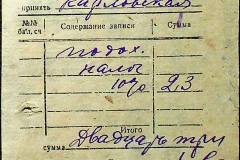 принять Карловская
№№ бал. сч. Содержание записи Сумма
подох.
налог
10% 23
Итого
сумма Двадцать три